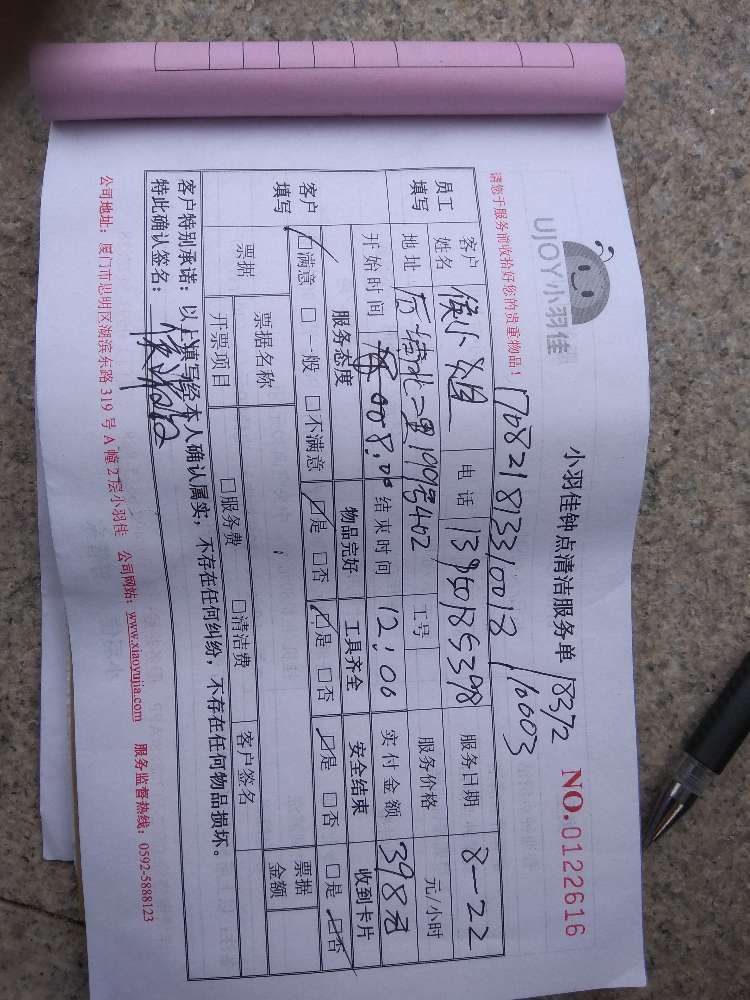 UJOY小羽佳
小羽佳钟点清洁服务单
18372
NO.0122616
请您于服务前收拾好您的贵重物品！
170821813310018
/10003
员工填写
客户姓名
侯小姐
电话
13950185398
服务日期
8-22
地址
后埭北二里190号402
工号
服务价格
元/小时
开始时间
008:00
结束时间
12:00
实付金额
398元
客户填写
服务态度
物品完好
工具齐全
安全结束
收到卡片
☑满意 □一般 □不满意
☑是 □否
☑是 □否
☑是 □否
□是 ☑否
票据
票据名称
客户签名
票据金额
开票项目
□服务费
□清洁费
客户特别承诺：以上填写经本人确认属实，不存在任何纠纷，不存在任何物品损坏。
特此确认签名：
公司地址：厦门市思明区湖滨东路319号A幢2层小羽佳 公司网站：www.xiaoyujia.com 服务监督热线：0592-5888123